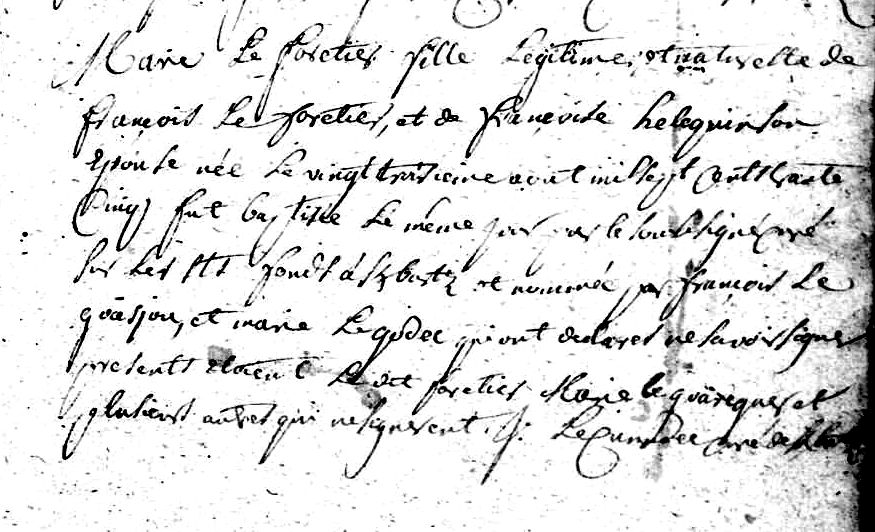 Marie Le foretier fille Legitime, et naturelle de
françois Le foretier, et de françoise helequin son
Epouse née Le vingt troisieme aout mil sept Cent trante
Cinq fut baptisée Le même jour par le soubsigné Curé
sur Les sts fonds à et nommée par françois Le
goasjou, et marie Le godec qui ont declarés ne savoir signer
presents etoient Le dit foretier Marie le goareguer et
plusieurs autres qui ne signerent curé de